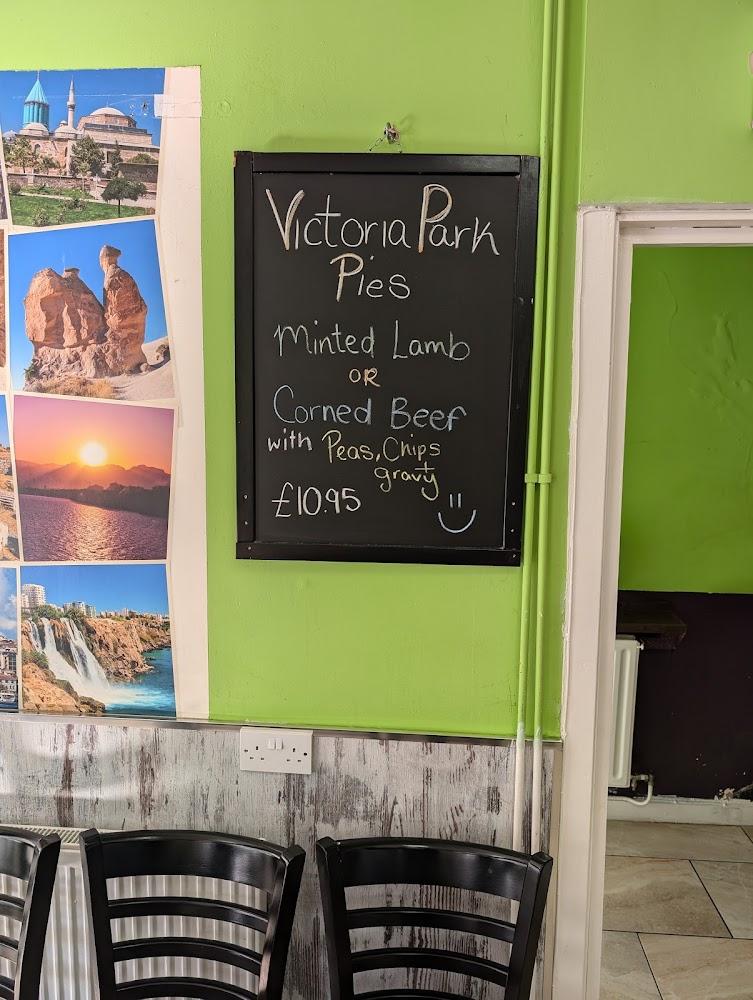 Victoria Park
Pies
Minted Lamb
OR
Corned Beef
with Peas, Chips
+ gravy
£10.95